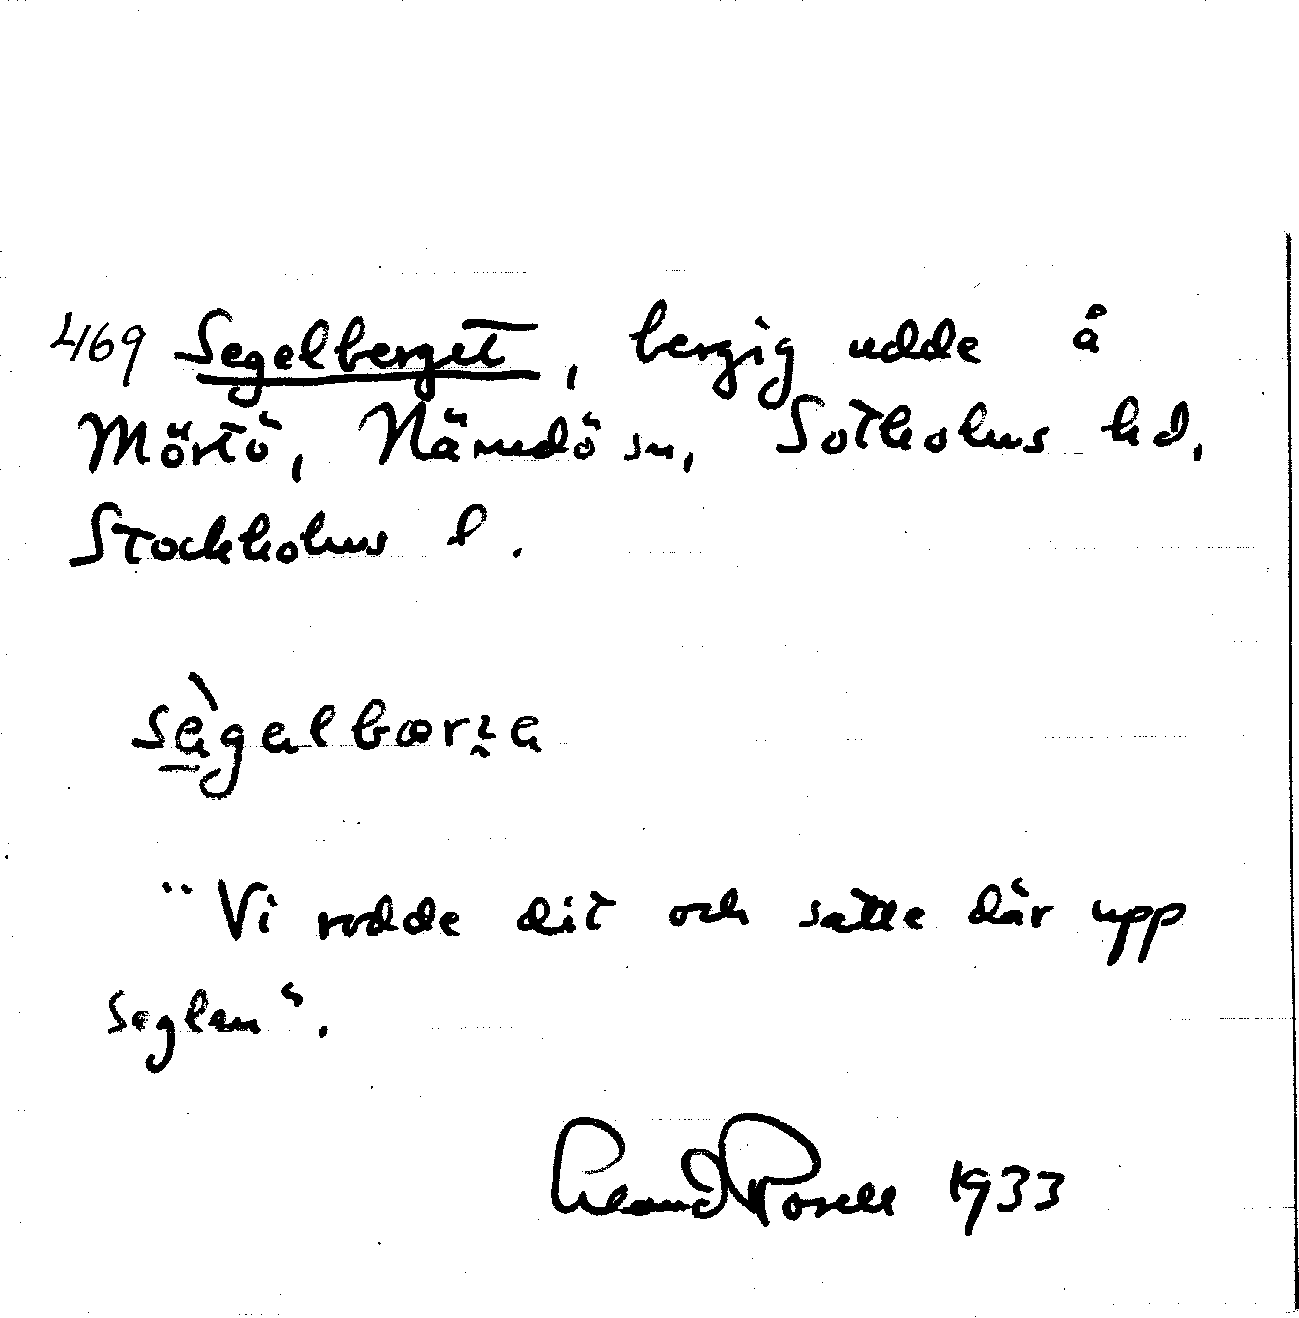 469 Segelberget, bergig udde å
Mörtö, Nämdö sn, Sotholms hd,
Stockholms l.
"Vi rodde dit och satte där upp
seglen".
Erland Rosell 1933